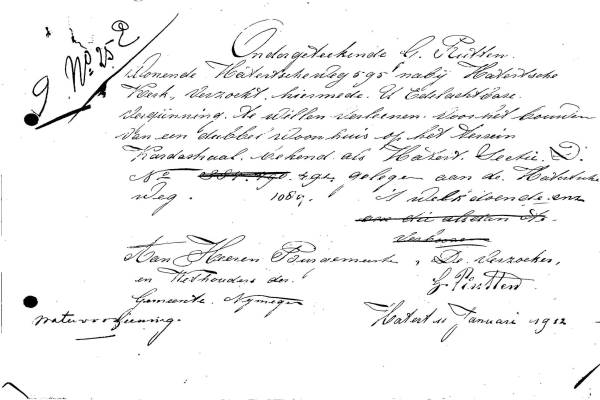 9 No. 25 2
Ondergeteekende G. Rutten.
Wonende Hatertscheweg 595 nabij Hatertsche
Kerk, Verzockt hiermede U Edelachtbare
Vergunning te willen verleenen voor het bouwen
van een dubbel woonhuis op het terrein
Kardastraal bekend als Hatert. Sectie. D.
No gelegen aan de Hatertsche
weg. 1089. 't Welk doende enz
Aan Heeren Burgemeester De Verzoeker,
en Wethouders der G. Rutten
Gemeente Nymegen
Watervoorziening. Hatert 11 Januari 1912